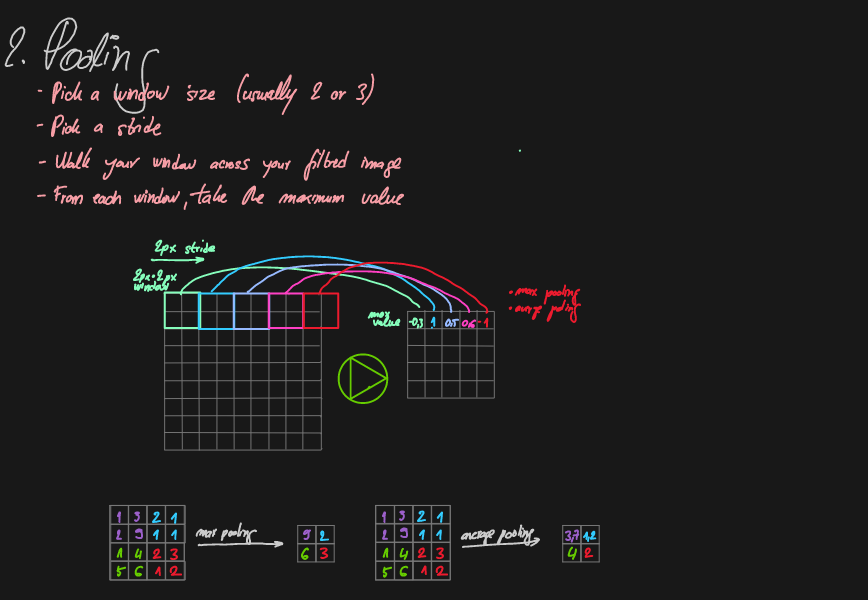 2. Pooling
- Pick a window size (usually 2 or 3)
- Pick a stride
- Walk your window across your filtred image
- From each window, take the maximum value
2px stride
2px·2px
window
max
value
-0,3 1 0,5 0,6 -1
• max pooling
1 3 2 1
2 9 1 1
1 4 2 3
5 6 1 2
max pooling
9 2
6 3
1 3 2 1
2 9 1 1
1 4 2 3
5 6 1 2
average pooling
3,7 1,2
4 2